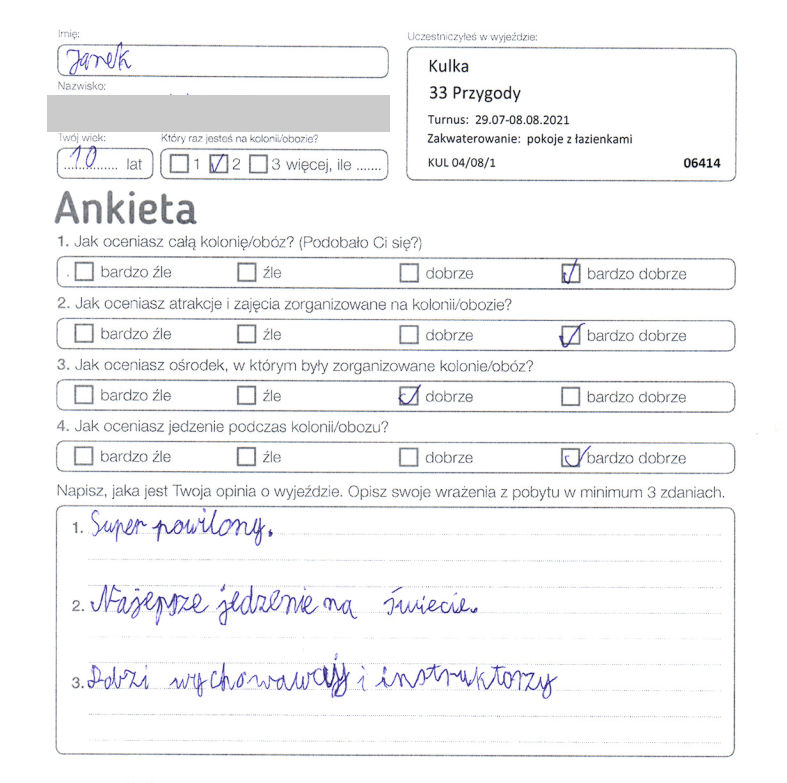 Imię:
Janek
Nazwisko:
Twój wiek:
10 lat
Który raz jesteś na kolonii/obozie?
1 2 3 więcej, ile .......
Uczestniczyłeś w wyjeździe:
Kulka
33 Przygody
Turnus: 29.07-08.08.2021
Zakwaterowanie: pokoje z łazienkami
KUL 04/08/1 06414
Ankieta
1. Jak oceniasz całą kolonię/obóz? (Podobało Ci się?)
bardzo źle źle dobrze bardzo dobrze
2. Jak oceniasz atrakcje i zajęcia zorganizowane na kolonii/obozie?
bardzo źle źle dobrze bardzo dobrze
3. Jak oceniasz ośrodek, w którym były zorganizowane kolonie/obóz?
bardzo źle źle dobrze bardzo dobrze
4. Jak oceniasz jedzenie podczas kolonii/obozu?
bardzo źle źle dobrze bardzo dobrze
Napisz, jaka jest Twoja opinia o wyjeździe. Opisz swoje wrażenia z pobytu w minimum 3 zdaniach.
1. Super pawilony.
2. Najepsze jedzenie na świecie.
3. Dobzi wychowawcy i instruktorzy